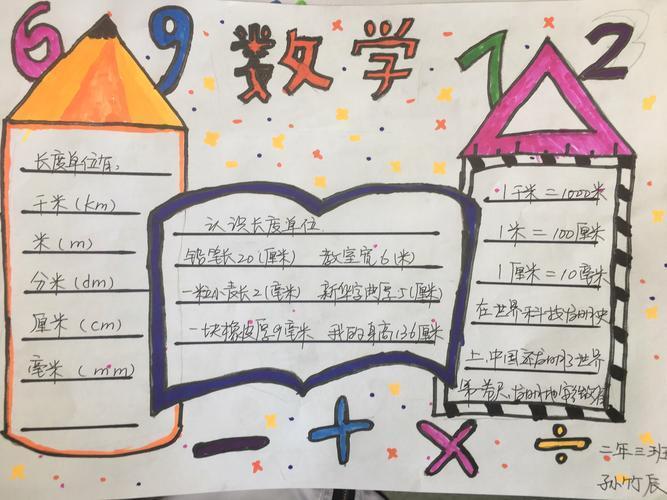 6 9 数学 7 2
长度单位有:
千米(km)
米(m)
分米(dm)
厘米(cm)
毫米(mm)
认识长度单位
铅笔长20(厘米) 教室宽6(米)
一粒小麦长2(毫米) 新华字典厚5(厘米)
一块橡皮厚9毫米 我的身高136厘米
1千米=1000米
1米=100厘米
1厘米=10毫米
在世界科技发明史
上,中国还发明了世界
第一
- + × ÷
二年三班
孙竹辰